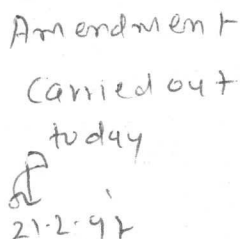 Amendment
carried out
today